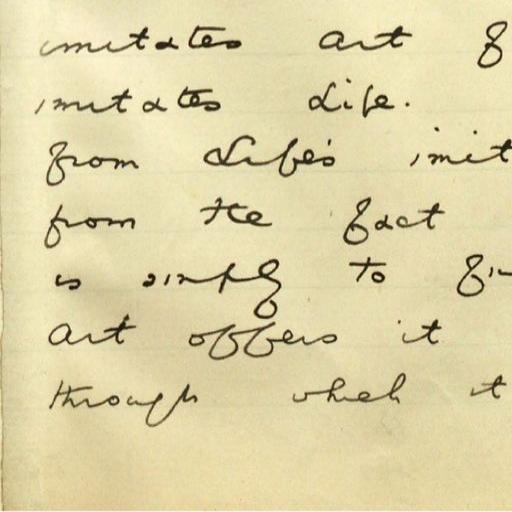 imitates art f
imitates Life.
from Life's imit
from the fact
is simply to fin
Art offers it
through which it